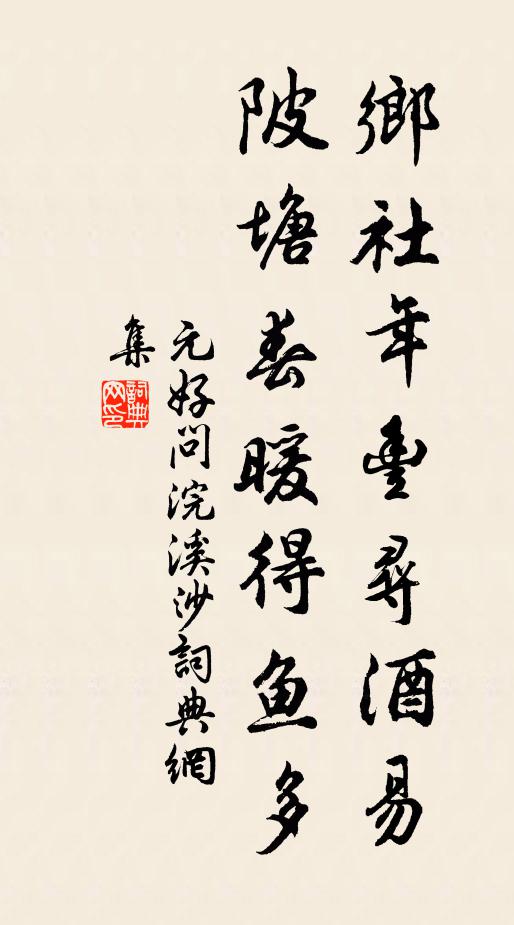 鄉社年豐尋酒易
陂塘春暖得鱼多
元好問浣溪沙詞典網
集
詞典網印